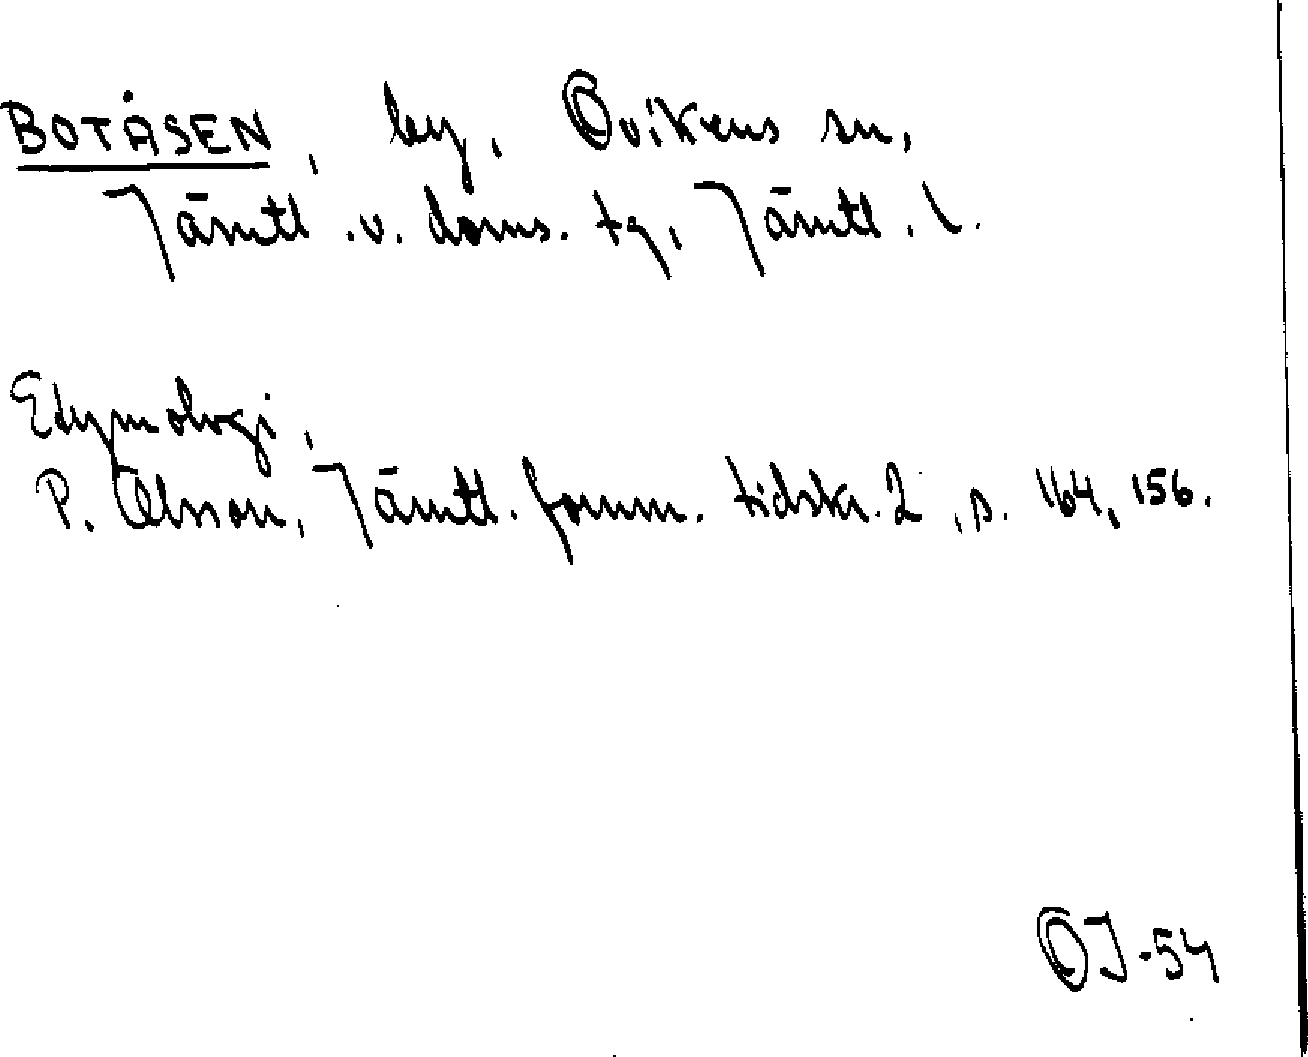 BOTÅSEN, by, Ovikens sn,
Jämtl. v. doms. tg, Jämtl. l.
Etymologi,
P. Olsson, Jämtl. fornm. tidskr. 2, s. 164, 156.
OJ-54